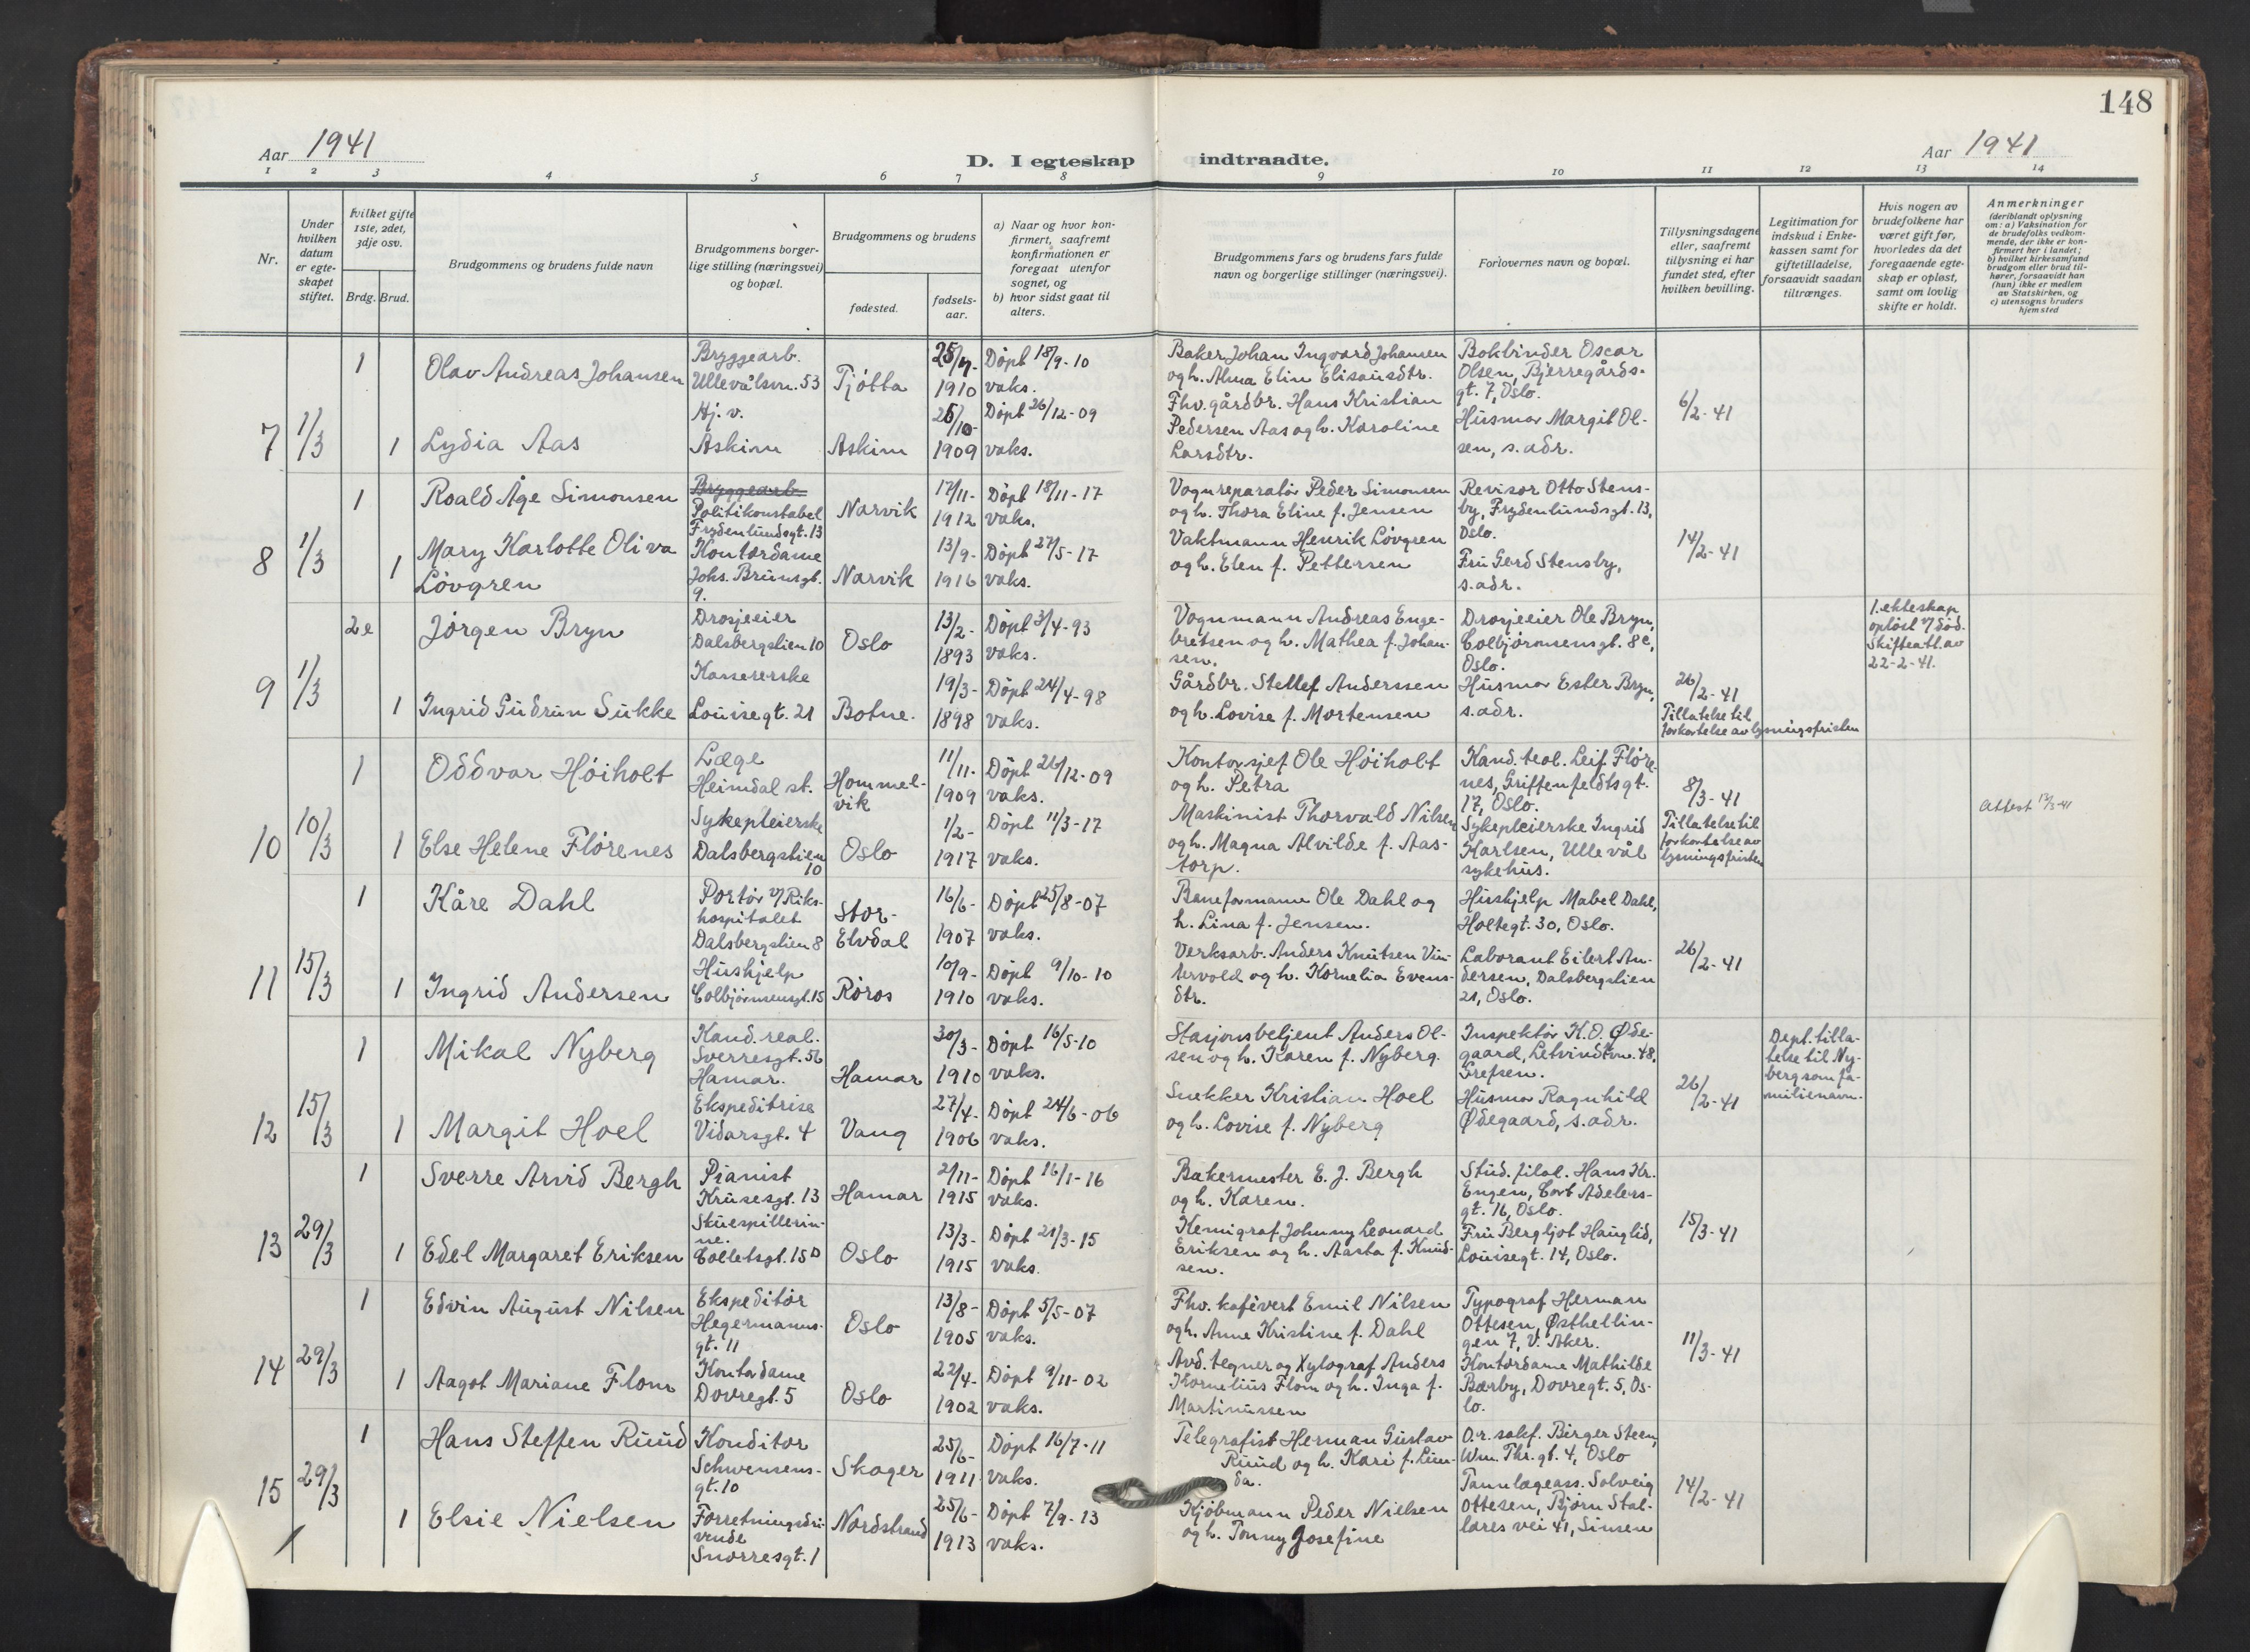 148
Aar 1941
D. I egteskap indtraadte.
Aar 1941
1 2 3 4 5 6 7 8 9 10 11 12 13 14
Nr.
Under
hvilken
datum
er egte-
skapet
stiftet.
Hvilket gifte
1ste, 2det,
3dje osv.
Brdg. Brud.
Brudgommens og brudens fulde navn
Brudgommens borger-
lige stilling (næringsvei)
og bopæl.
Brudgommens og brudens
fødested.
fødsels-
aar.
a) Naar og hvor kon-
firmert, saafremt
konfirmationen er
foregaat utenfor
sognet, og
b) hvor sidst gaat til
alters.
Brudgommens fars og brudens fars fulde
navn og borgerlige stillinger (næringsvei).
Forlovernes navn og bopæl.
Tillysningsdagene
eller, saafremt
tillysning ei har
fundet sted, efter
hvilken bevilling.
Legitimation for
indskud i Enke-
kassen samt for
giftetilladelse,
forsaavidt saadan
tiltrænges.
Hvis nogen av
brudefolkene har
været gift før,
hvorledes da det
foregaaende egte-
skap er opløst,
samt om lovlig
skifte er holdt.
Anmerkninger
(deriblandt oplysning
om: a) Vaksination for
de brudefolks vedkom-
mende, der ikke er kon-
firmert her i landet;
b) hvilket kirkesamfund
brudgom eller brud til-
hører, forsaavidt han
(hun) ikke er medlem
av Statskirken, og
c) utensogns bruders
hjemsted
7 1/3
1 Olav Andreas Johansen
Bryggearb.
Ullevålsvn. 53
Tjøtta
25/7-
1910
Døpt 18/9-10
vaks.
Baker Johan Ingvard Johansen
og h. Alma Elin Elisausdtr.
Bokbinder Oscar
Olsen, Bjerregårds-
gt. 7, Oslo.
1 Lydia Aas
Hj. v.
Askim
Askim
25/10-
1909
Døpt 26/12-09
vaks.
Fhv. gårdbr. Hans Kristian
Pedersen Aas og h. Karoline
Larsdtr.
Husmor Margit Ol-
sen, s. adr.
6/2-41
8 1/3
1 Roald Åge Simonsen
Bryggearb.
Politikonstabel
Frydenlundsgt. 13
Narvik
17/11-
1912
Døpt 18/11-17
vaks.
Vognreparatør Peder Simonsen
og h. Thora Eline f. Jensen
Revisor Otto Stens-
by, Frydenlundsgt. 13,
Oslo.
1 Mary Karlotte Oliva
Løvgren
Kontordame
Johs. Brunsgt.
9.
Narvik
13/9-
1916
Døpt 27/5-17
vaks.
Vaktmann Henrik Løvgren
og h. Elen f. Pettersen
Fru Gerd Stensby,
s. adr.
14/2-41
9 1/3
2e Jørgen Bryn
Drosjeeier
Dalsbergstien 10
Oslo
13/2-
1893
Døpt 3/4-93
vaks.
Vognmann Andreas Enge-
bretsen og h. Mathea f. Johan-
sen.
Drosjeeier Ole Bryn,
Colbjørnsensgt. 8c,
Oslo.
1. ekteskap
opløst v/ død.
Skifteatt. av
22-2-41.
1 Ingrid Gudrun Sukke
Kassererske
Louisegt. 21
Botne.
19/3-
1898
Døpt 24/4-98
vaks.
Gårdbr. Stellef Anderssen
og h. Lovise f. Mortensen
Husmor Ester Bryn,
s. adr.
26/2-41
Tillatelse til
forkortelse av lysningsfristen
10 10/3
1 Oddvar Høiholt
Læge
Heimdal st.
Hommel-
vik
11/11-
1909
Døpt 26/12-09
vaks.
Kontorsjef Ole Høiholt
og h. Petra
Kand. teol. Leif Fløre-
nes, Griffenfeldtsgt.
17, Oslo.
1 Else Helene Flørenes
Sykepleierske
Dalsbergstien
10
Oslo
1/2-
1917
Døpt 11/3-17
vaks.
Maskinist Thorvald Nilsen
og h. Magna Alvilde f. Aas-
torp.
Sykepleierske Ingrid
Karlsen, Ullevål
sykehus.
8/3-41
Tillatelse til
forkortelse av
lysningsfristen
Attest 12/3-41
11 15/3
1 Kåre Dahl
Portør v/ Riks-
hospitalet
Dalsbergstien 8
Stor-
Elvdal
16/6-
1907
Døpt 25/8-07
vaks.
Baneformann Ole Dahl og
h. Lina f. Jensen.
Hushjelp Mabel Dahl,
Holtegt. 30, Oslo.
1 Ingrid Andersen
Hushjelp
Colbjørnsensgt. 15
Røros
10/9-
1910
Døpt 9/10-10
vaks.
Verksarb. Anders Knutsen Vin-
tervold og h. Kornelia Evens-
dtr.
Laborant Eilert An-
dersen, Dalsbergstien
21, Oslo.
26/2-41
12 15/3
1 Mikal Nyberg
Kand. real.
Sverresgt. 56
Hamar.
Hamar
30/3-
1910
Døpt 16/5-10
vaks.
Stasjonsbetjent Anders Ol-
sen og h. Karen f. Nyberg.
Inspektør K.O. Øde-
gaard, Letvindtvn. 48,
Grefsen.
Dept. tilla-
telse til Ny-
berg som fa-
milienavn.
1 Margit Hoel
Ekspeditrise
Vidarsgt. 4
Vang
27/4-
1906
Døpt 24/6-06
vaks.
Snekker Kristian Hoel
og h. Lovise f. Nyberg
Husmor Ragnhild
Ødegaard, s. adr.
26/2-41
13 29/3
1 Sverre Arvid Bergh
Pianist
Krusesgt. 13
Hamar
2/11-
1915
Døpt 16/1-16
vaks.
Bakermester E. J. Bergh
og h. Karen.
Stud. filol. Hans Kr.
Engen, Cort Adelers-
gt. 16, Oslo.
1 Edel Margaret Eriksen
Skuespillerin-
ne.
Colletsgt. 15 D
Oslo
13/3-
1915
Døpt 21/3-15
vaks.
Kemigraf Johnny Leonard
Eriksen og h. Aasta f. Knud-
sen.
Fru Bergljot Hauglid,
Louisegt. 14, Oslo.
15/3-41
14 29/3
1 Edvin August Nilsen
Ekspeditør
Hegermanns-
gt. 11
Oslo
13/8-
1905
Døpt 5/5-07
vaks.
Fhv. kafévert Emil Nilsen
og h. Anne Kristine f. Dahl
Typograf Herman
Ottesen, Østhellin-
gen 7, V. Aker.
1 Aagot Mariane Flom
Kontordame
Dovregt. 5
Oslo
22/4-
1902
Døpt 9/11-02
vaks.
Avd. tegner og Xylograf Anders
Kornelius Flom og h. Inga f.
Martinussen
Kontordame Mathilde
Bærby, Dovregt. 5, Os-
lo.
11/3-41
15 29/3
1 Hans Steffen Ruud
Konditor
Schwensens-
gt. 10
Skoger
25/6-
1911
Døpt 16/7-11
vaks.
Telegrafist Herman Gustav
Ruud og h. Kari f. Lun-
da.
O.r. sakf. Birger Steen,
Wm. Thr. gt. 4, Oslo
1 Elsie Nielsen
Forretningsdri-
vende
Snorresgt. 1
Nordstrand
25/6-
1913
Døpt 7/9-13
vaks.
Kjøbmann Peder Nielsen
og h. Tonny Josefine
Tannlægeass. Solveig
Ottesen, Bjørn Stal-
lares vei 41, Sinsen
14/2-41